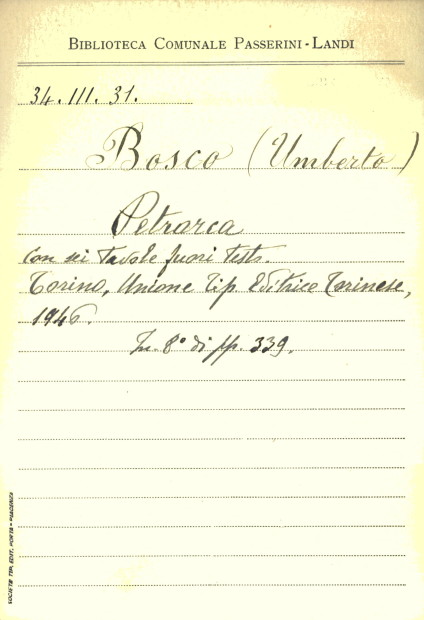 BIBLIOTECA COMUNALE PASSERINI-LANDI
34.III.31.
Bosco (Umberto)
Petrarca
Con sei tavole fuori testo.
Torino, Unione Tip. Editrice Torinese,
1946.
In. 8° di pp. 339.
SOCIETÀ TIP. EDIT. PORTA - PIACENZA